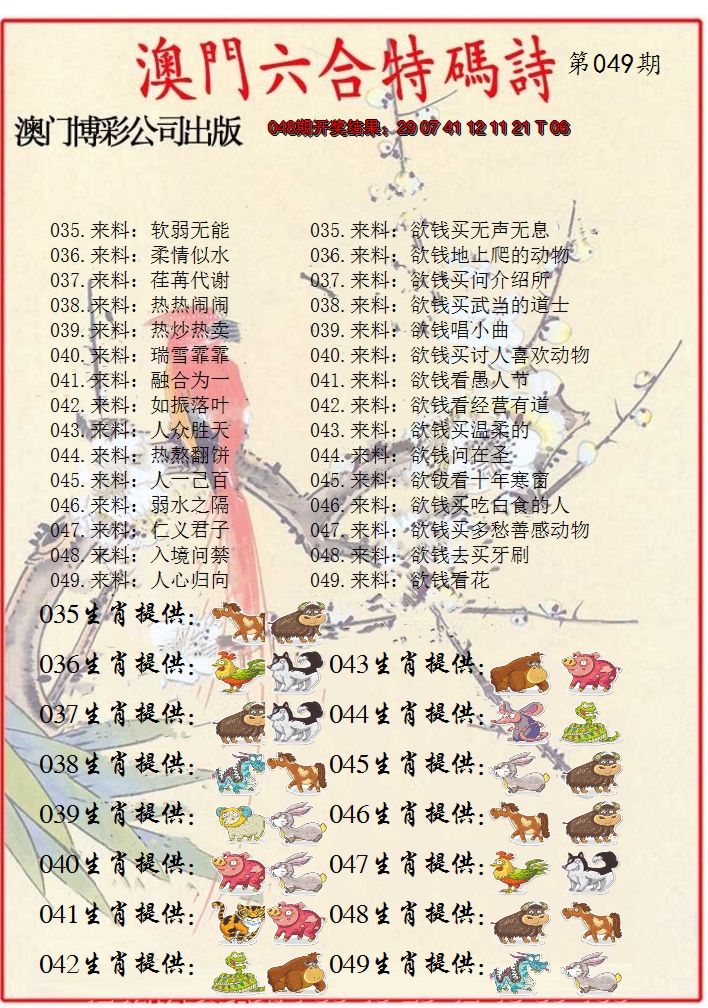 澳門六合特碼詩 第049期
澳门博彩公司出版
048期开奖结果：29 07 41 12 11 21 T 06
035.来料：软弱无能 035.来料：欲钱买无声无息
036.来料：柔情似水 036.来料：欲钱地上爬的动物
037.来料：荏苒代谢 037.来料：欲钱买何介绍所
038.来料：热热闹闹 038.来料：欲钱买武当的道士
039.来料：热炒热卖 039.来料：欲钱唱小曲
040.来料：瑞雪霏霏 040.来料：欲钱买讨人喜欢动物
041.来料：融合为一 041.来料：欲钱看愚人节
042.来料：如振落叶 042.来料：欲钱看经营有道
043.来料：人众胜天 043.来料：欲钱买温柔的
044.来料：热熬翻饼 044.来料：欲钱问在圣
045.来料：人一己百 045.来料：欲钱看十年寒窗
046.来料：弱水之隔 046.来料：欲钱买吃白食的人
047.来料：仁义君子 047.来料：欲钱买多愁善感动物
048.来料：入境问禁 048.来料：欲钱去买牙刷
049.来料：人心归向 049.来料：欲钱看花
035生肖提供：
036生肖提供： 043生肖提供：
037生肖提供： 044生肖提供：
038生肖提供： 045生肖提供：
039生肖提供： 046生肖提供：
040生肖提供： 047生肖提供：
041生肖提供： 048生肖提供：
042生肖提供： 049生肖提供：